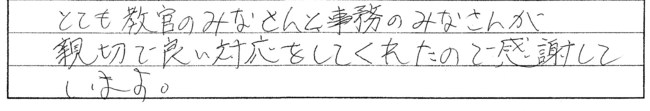 とても教官のみなさんと、事務のみなさんが
親切で良い対応をしてくれたので感謝して
います。